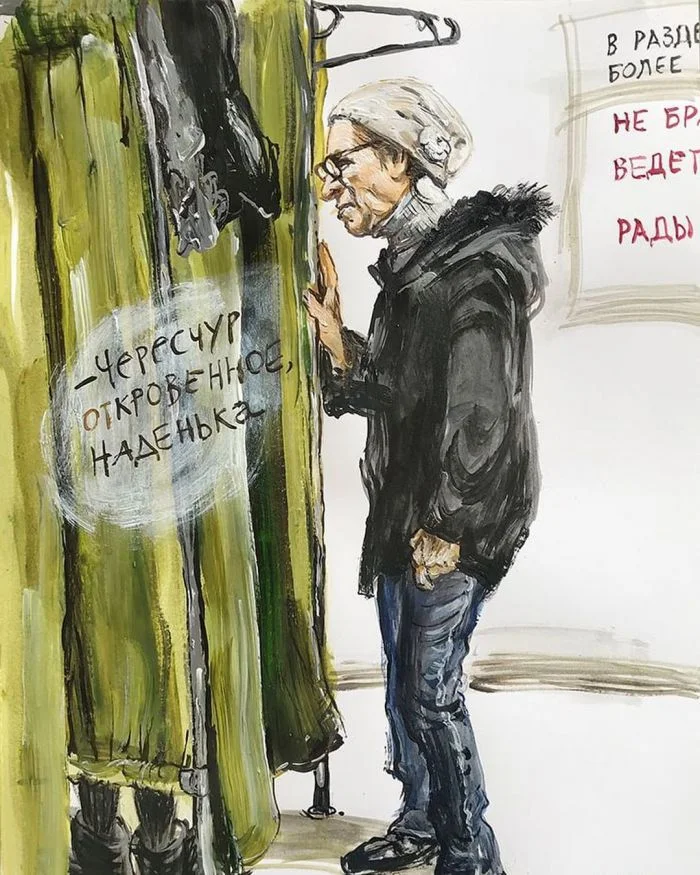 – ЧЕРЕСЧУР
ОТКРОВЕННОЕ,
НАДЕНЬКА
В РАЗДЕ
БОЛЕЕ
НЕ БР
ВЕДЕТ
РАДЫ